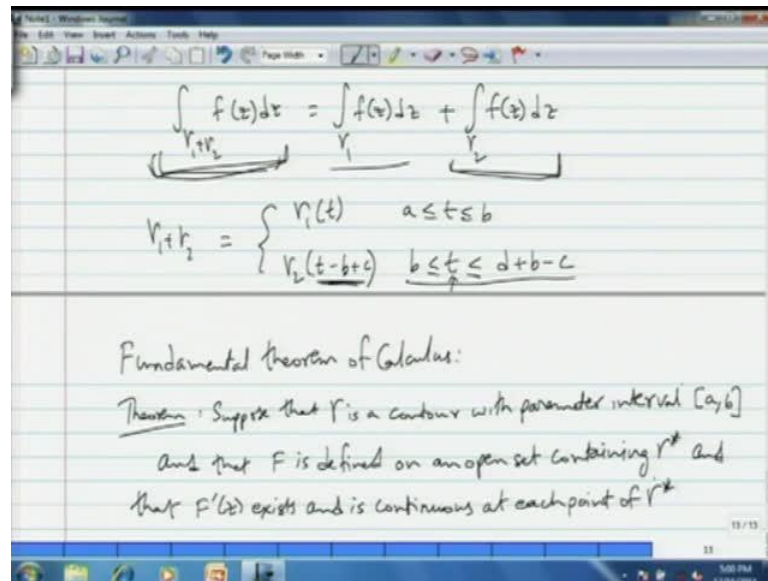 Note1 - Windows Journal
File Edit View Insert Actions Tools Help
Page Width
∫_{γ₁+γ₂} f(z)dz = ∫_{γ₁} f(z)dz + ∫_{γ₂} f(z)dz
γ₁+γ₂ = { γ₁(t) a≤t≤b
γ₂(t-b+c) b≤t≤d+b-c
Fundamental theorem of Calculus:
Theorem: Suppose that γ is a contour with parameter interval [a,b]
and that F is defined on an open set containing γ* and
that F'(z) exists and is continuous at each point of γ*
13/13
13
5:00 PM